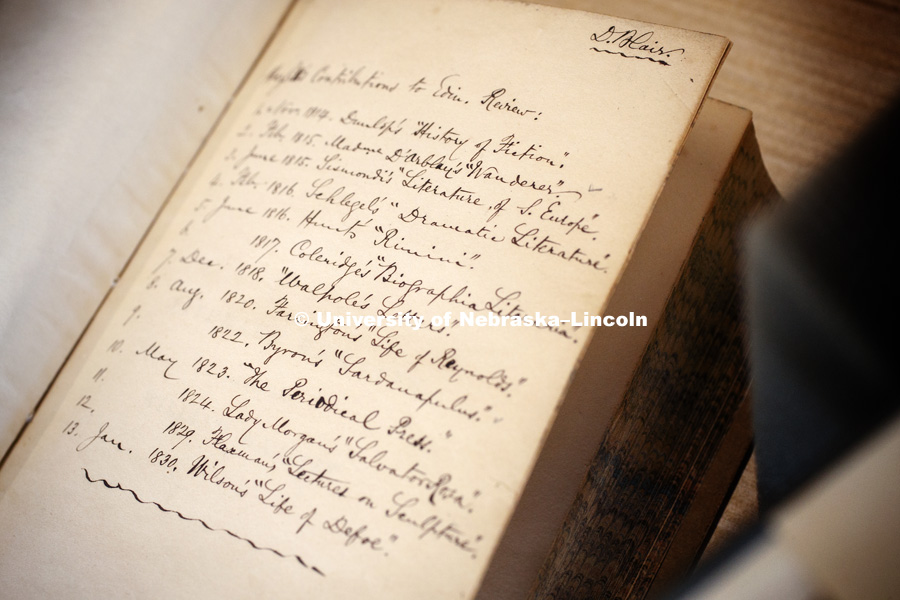 D. Blair.
Contributions to Edin. Review:
1. Nov. 1814. Dunlop's "History of Fiction".
2. Feb. 1815. Madme D'arblay's "Wanderer"
3. June 1815. Sismondi's "Literature of S. Europe".
4. Feb. 1816. Schlegel's "Dramatic Literature".
5. June 1816. Hunt's "Rimini".
6. 1817. Coleridge's "Biographia Literaria.
7. Dec. 1818. "Walpole's Letters".
8. Aug. 1820. Farington's "Life of Reynolds".
9. 1822. Byron's "Sardanapulus."
10. May 1823. "The Periodical Press."
11. 1824. Lady Morgan's "Salvator Rosa".
12. 1829. Flaxman's "Lectures on Sculpture".
13. Jan. 1830. Wilson's "Life of Defoe".
© University of Nebraska–Lincoln